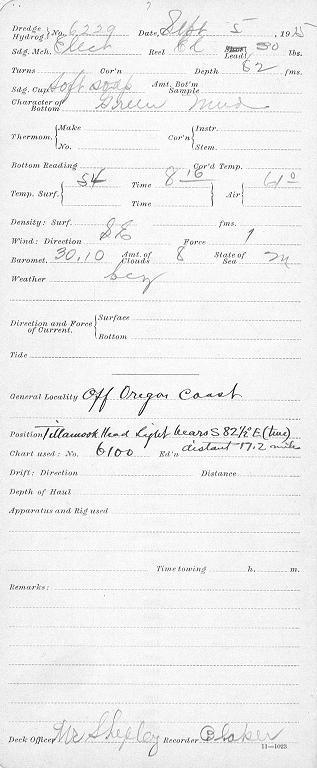 Dredge Hydrog } No. 6229 Date, Sept 5, 1925
Sdg. Mch. Elect Reel Ed Lead 30 lbs.
Turns Cor'n Depth 62 fms.
Sdg. Cup Soft soap Amt. Bot'm Sample
Character of Bottom } Green Mud
Thermom. { Make Cor'n { Instr.
No. Stem.
Bottom Reading Cor'd Temp.
Temp. Surf. { 54 Time 8 16 Air { 61°
Time
Density: Surf. fms.
Wind: Direction SE Force 1
Baromet. 30.10 Amt. of Clouds 8 State of Sea M
Weather bcy
Direction and Force of Current. { Surface
Bottom
Tide
General Locality Off Oregon Coast
Position Tillamook Head Light bears S 82½° E (true)
Chart used: No. 6100 Ed'n distant 17.2 miles
Drift: Direction Distance
Depth of Haul
Apparatus and Rig used
Time towing h. m.
Remarks:
Deck Officer Mc Shepley Recorder Blaker
11—1023